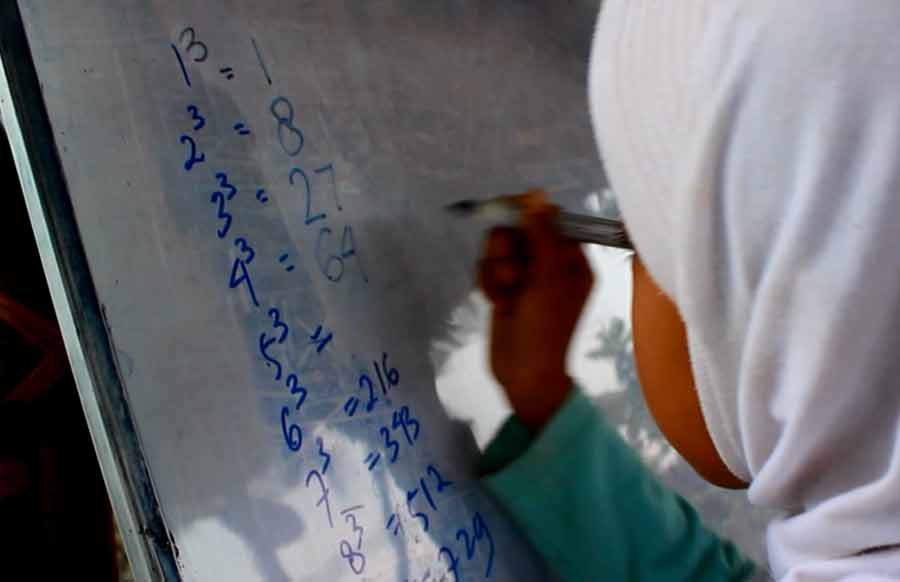 1³ = 1
2³ = 8
3³ = 27
4³ = 64
5³ =
6³ = 216
7³ = 343
8³ = 512
= 729